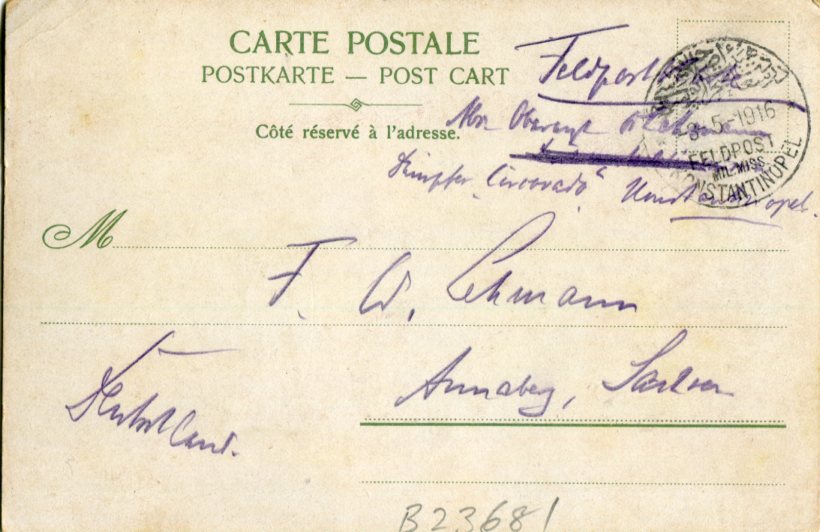 CARTE POSTALE
POSTKARTE — POST CART
Côté réservé à l'adresse.
Feldpost
8-5-1916
FELDPOST
MIL. MISS.
KONSTANTINOPEL
Lehmann
Dampfer „Corcovado“ Konstantinopel.
M
F. W. Lehmann
Annaberg, Sachsen
Deutschland.
B23681